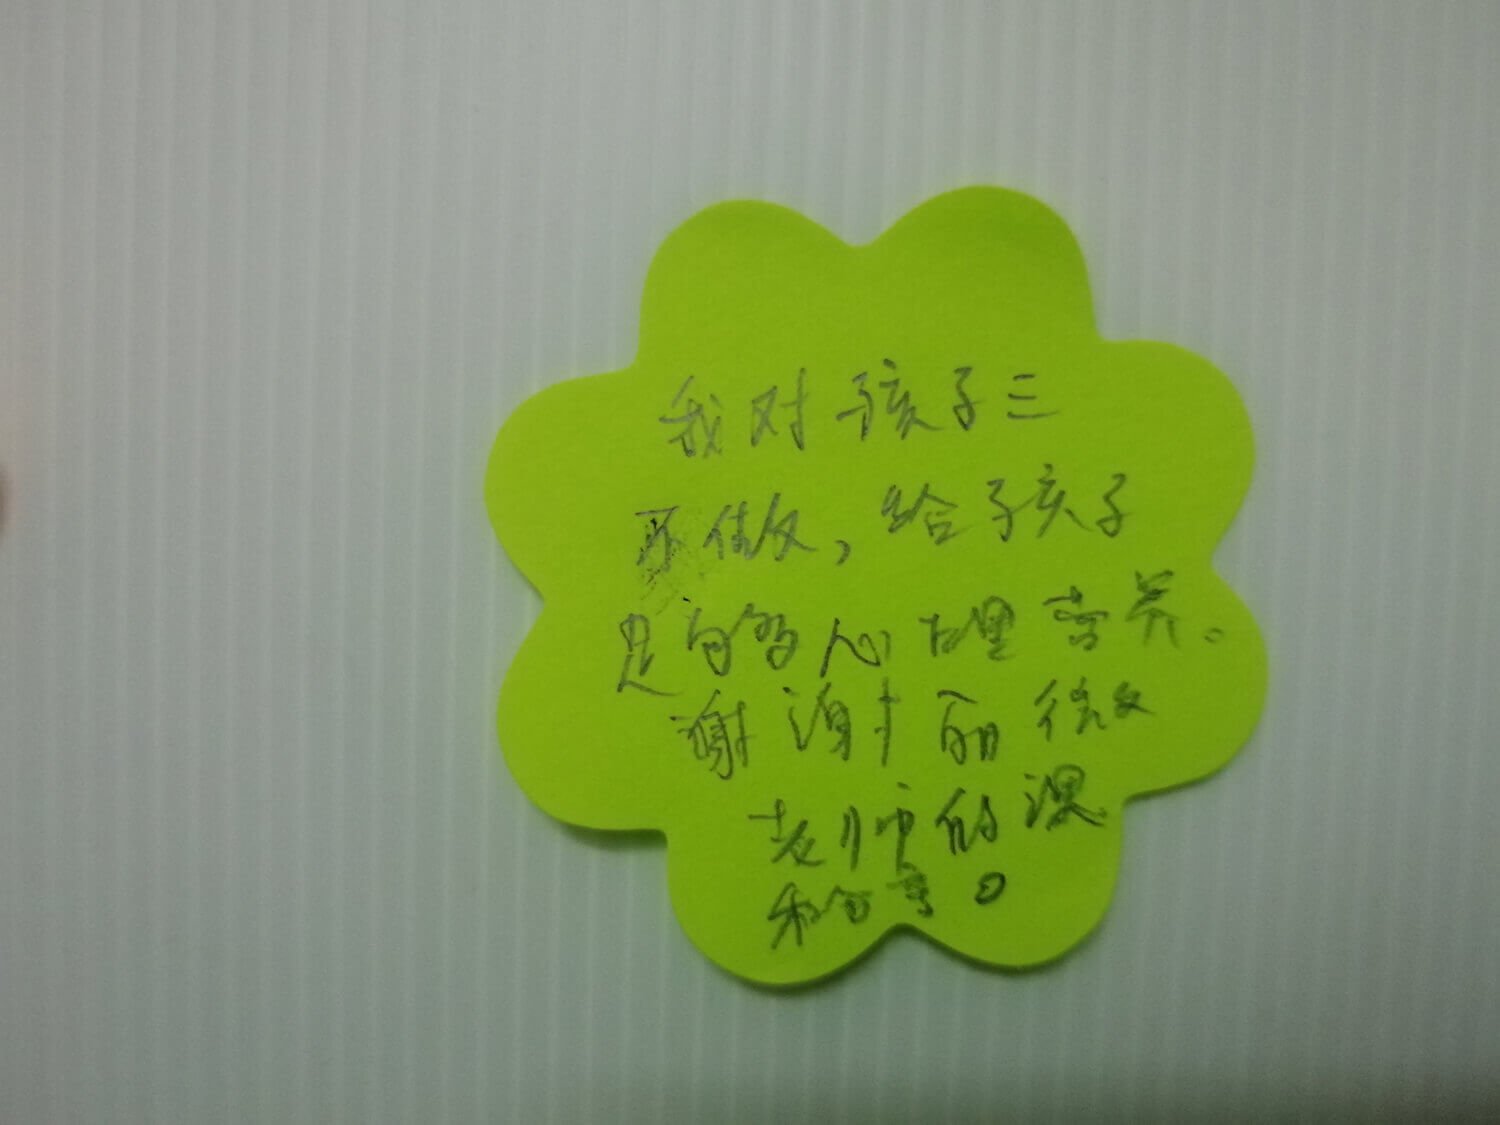 我对孩子三
不做，给孩子
足够多心理营养。
谢谢丽微
老师的课
和分享。